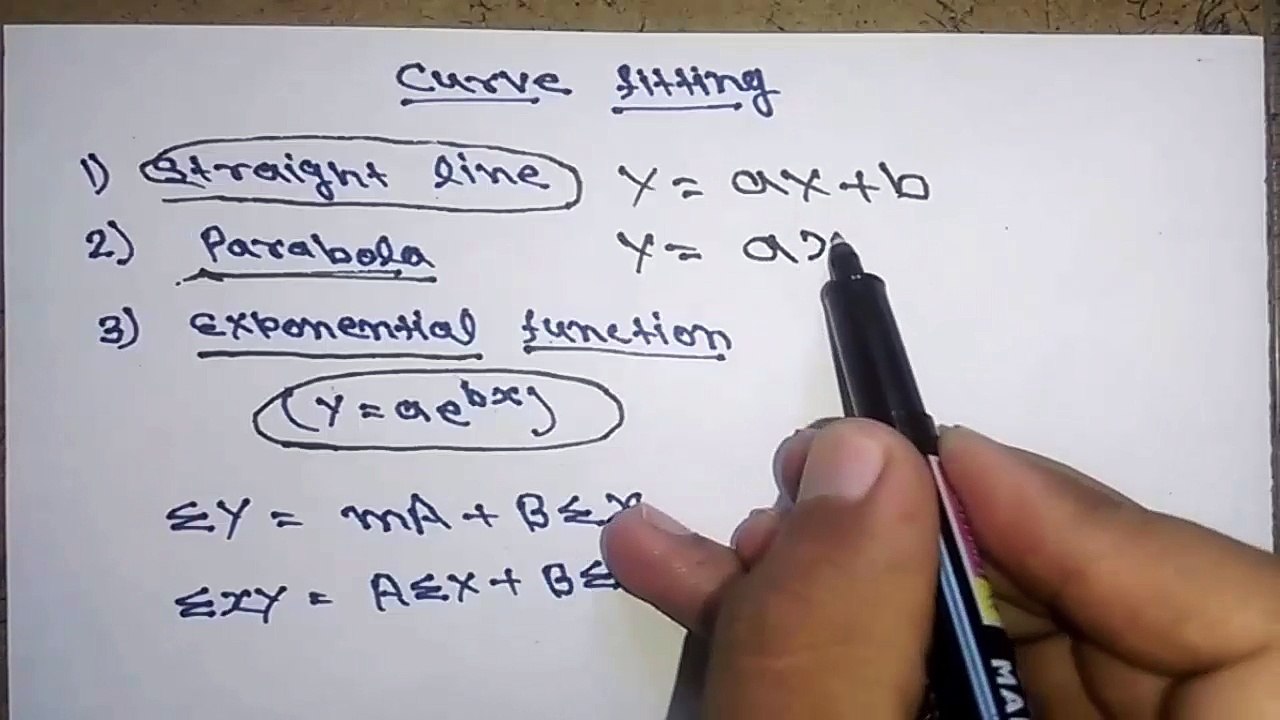 Curve fitting
1) Straight line Y = ax + b
2) Parabola Y = a
3) Exponential function
(Y = ae^{bx})
ΣY = mA + BΣX
ΣXY = AΣX + BΣ
MA